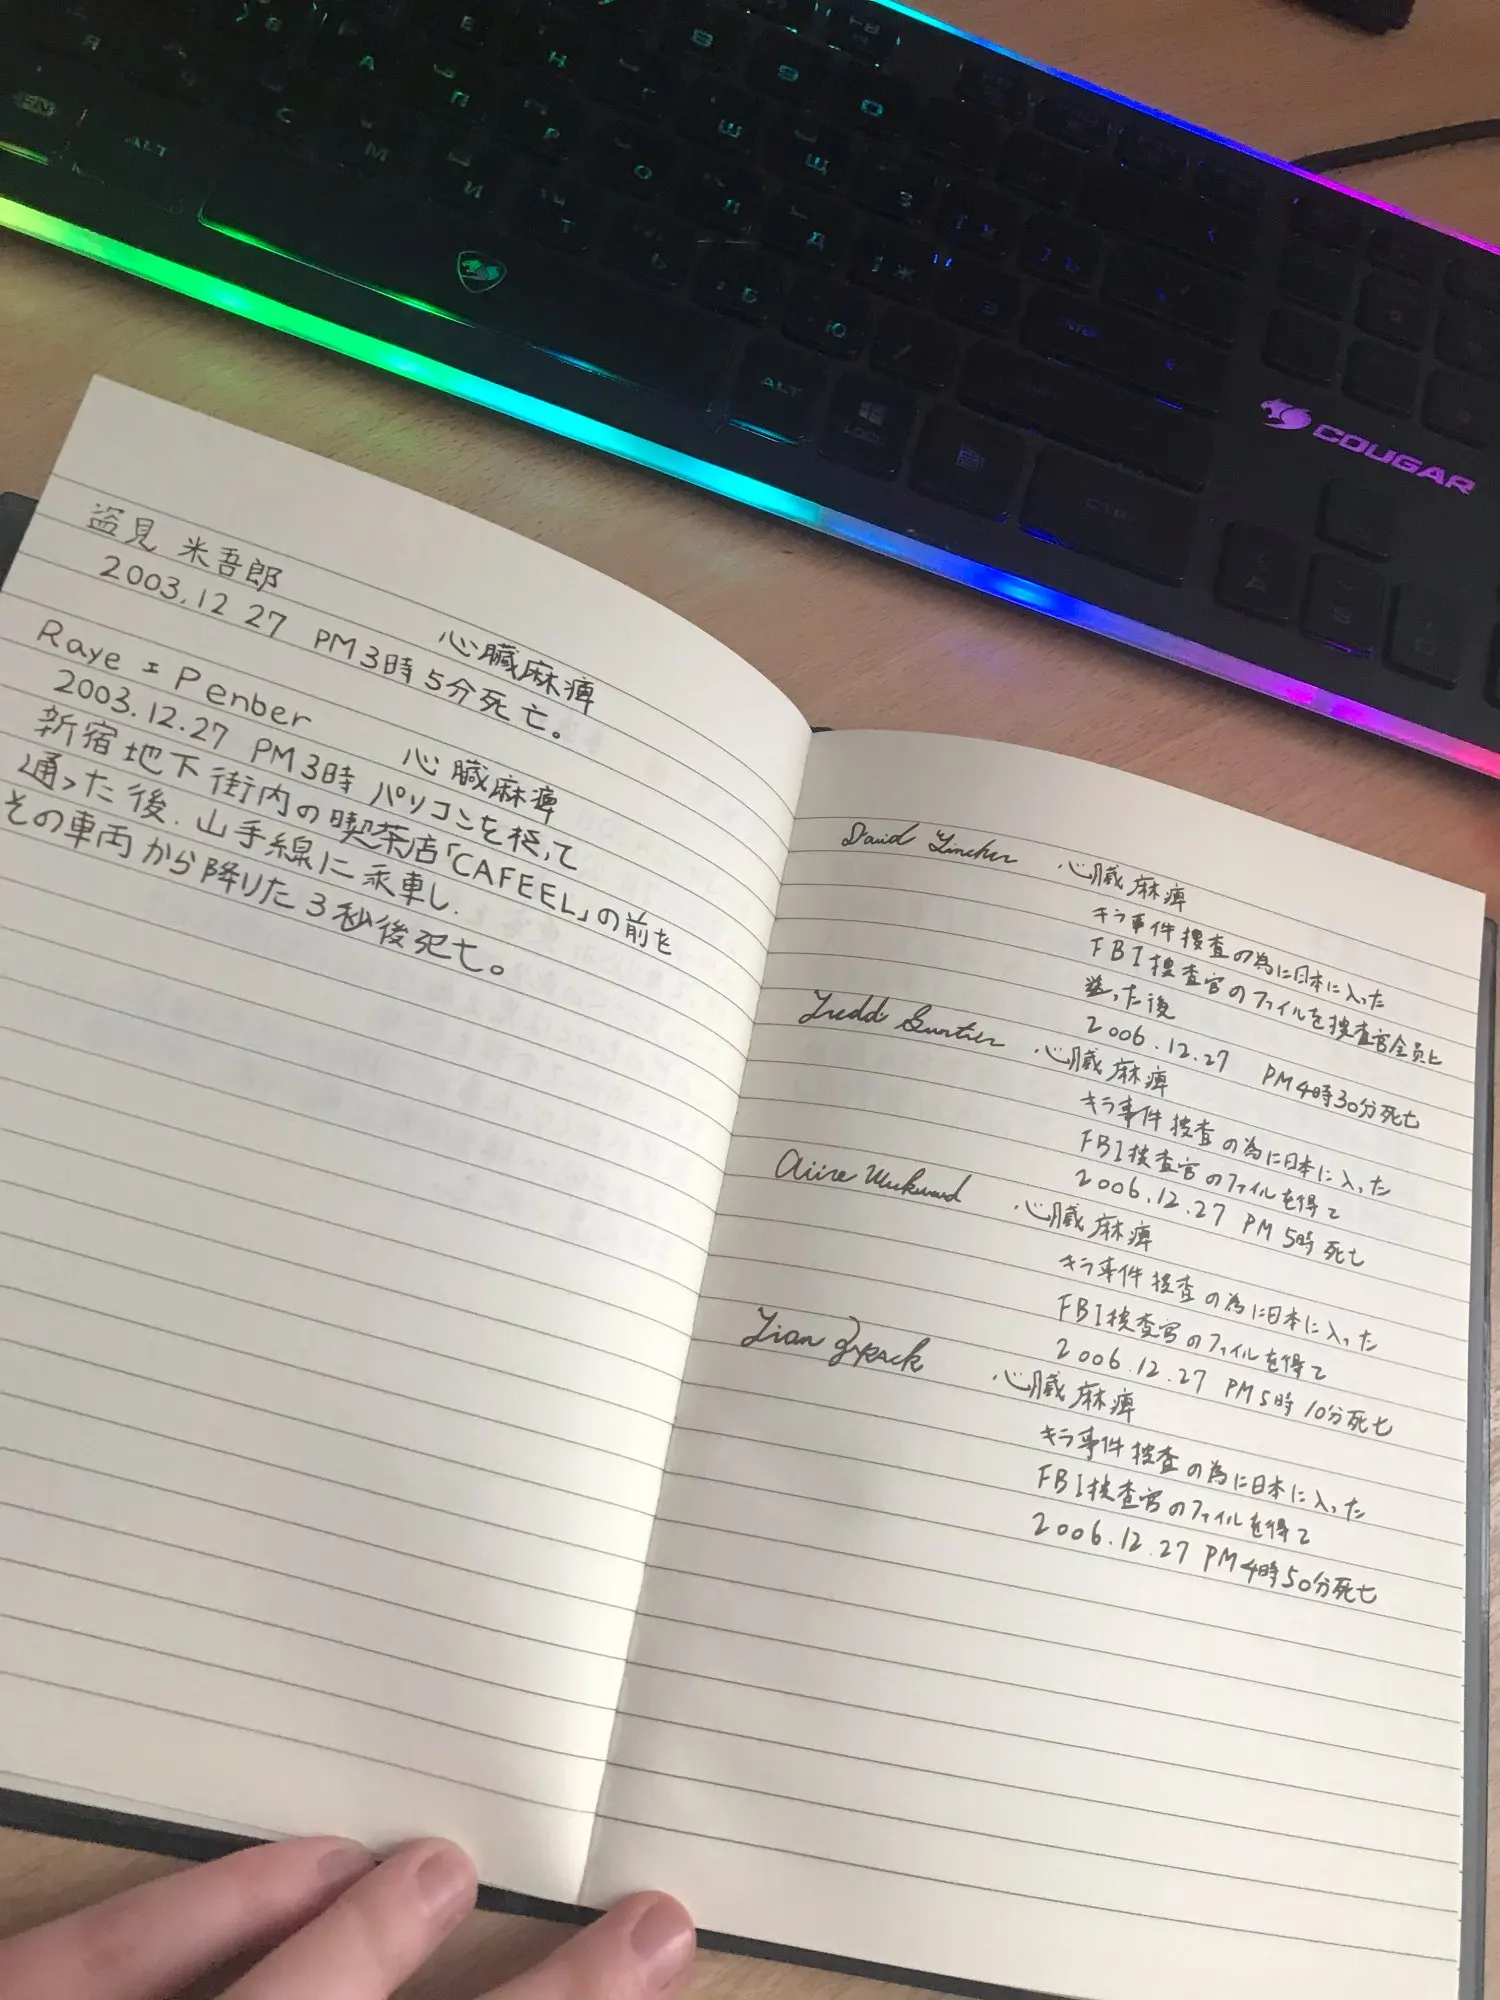 COUGAR
ALT
ALT
FN
盗見 米吾郎
心臓麻痺
2003.12 27 PM3時5分死亡。
Raye = Penber
心臓麻痺
2003.12.27 PM3時 パソコンを使って
新宿地下街内の喫茶店「CAFEEL」の前を
通った後、山手線に乗車し、
その車両から降りた3秒後死亡。
David 心臓麻痺
キラ事件捜査の為に日本に入った
FBI捜査官のファイルを捜査官全員に
送った後
2006.12.27 PM4時30分死亡
心臓麻痺
キラ事件捜査の為に日本に入った
FBI捜査官のファイルを得て
2006.12.27 PM5時死亡
心臓麻痺
キラ事件捜査の為に日本に入った
FBI捜査官のファイルを得て
2006.12.27 PM5時10分死亡
Lian 心臓麻痺
キラ事件捜査の為に日本に入った
FBI捜査官のファイルを得て
2006.12.27 PM4時50分死亡